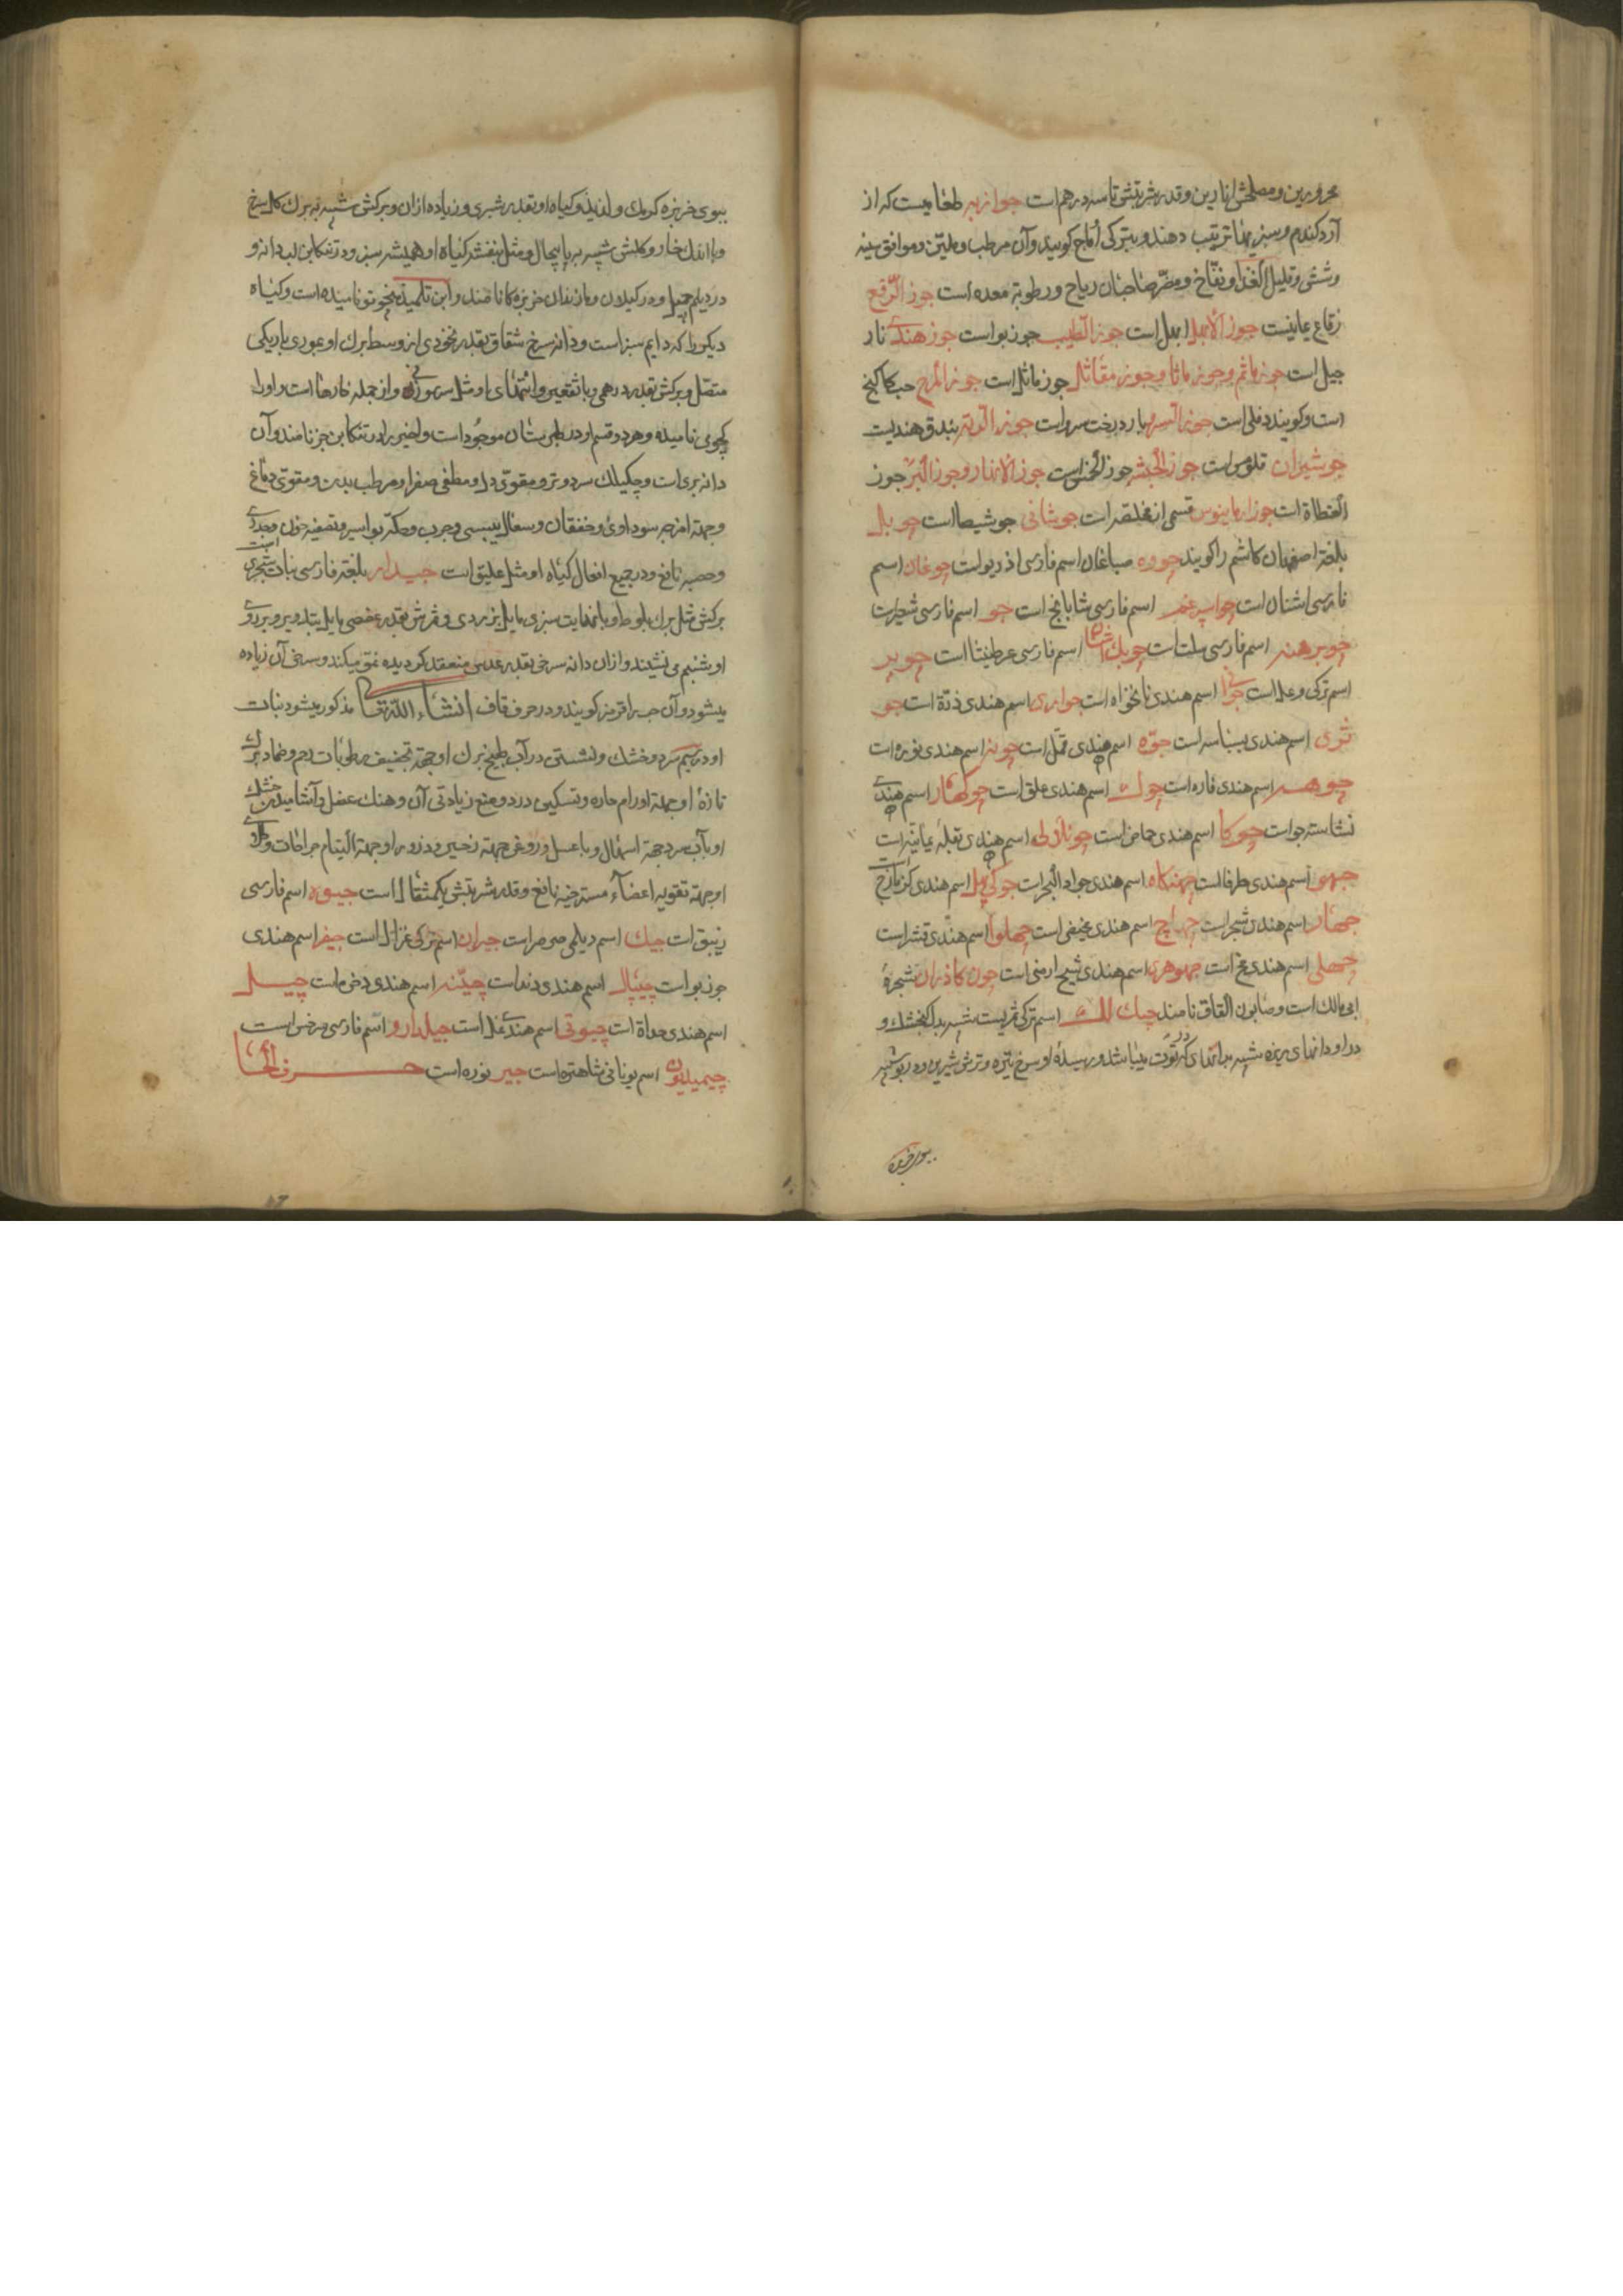 محرورین و مصلحش انارین و قدر شربتش تا سه درهم است جوازبه طعامیست که از
آرد گندم و سبزیها ترتیب دهند و بترکی اُماج کویند و آن مرطب و ملیّن و موافق سینه
و شش و قلیل الغذا و نفّاخ و مضرّ صاحبان ریاح و رطوبة معده است جوز الرّقع
رقاع یمانیست جوز الابهل ابهل است جوز الطیب جوز بواست جوز هندی نار
جیل است جوز ماثم و جوز ماثا و جوز مقاتل جوز ماثل است جوز المرج حب کاکنج
است و کویند دفلی است جوز السرو بار درخت سرو است جوز الرته بندق هندیست
جوشیران قلومس است جوز الحبشه جوز الخمس است جوز الانهار و جوز البر جوز
القطاة است جوز ارمانیوس قسمی از مخلصه است جوشانی جوشیصا است جویال
بلغة اصفهان کاشم را کویند جووه صباغان اسم فارسی اذریواست جوغان اسم
فارسی اشنان است جواسپرغم اسم فارسی شابابج است جو اسم فارسی شعیر است
جوبرهنه اسم فارسی سلت است جوبک اشنان اسم فارسی عرطنیثا است جویر
اسم ترکی وعل است جوانی اسم هندی نانخواه است جواری اسم هندی ذرّة است جو
تری اسم هندی بسباسه است جوّه اسم هندی قمّل است جونه اسم هندی نوره است
جوهــه اسم هندی فاره است جوک اسم هندی علق است جوکهار اسم هندی
نشاسته جو است چوکا اسم هندی حماض است چونلایی اسم هندی بقلهٔ یمانیّه است
جهو اسم هندی طرفا است جهنکاه اسم هندی جراد البحر است جوکی پهل اسم هندی کزمازج
جهار اسم هندی شجر است چهاچ اسم هندی مخیض است چهلوا اسم هندی قشر است
جهلی اسم هندی مخ است جهوهری اسم هندی شیح ارمنی است چوک کاذران شجرهٔ
ابی مالک است و صابون القاق نامند جیک لک اسم ترکی ثمریست شبیه بدل کنجشک و
در او دانهای ریزه شبیه بدانهای که در توت میباشد و رسیدهٔ او سرخ تیره و ترش شیرین و در بو شبیه
ببوی خربزه
ببوی خربزه کرمک و لذیذ و کیاه او بقدر شبری و زیاده از آن و برکش شبیه به برک کل سرخ
و با اندک خار و کلش شبیه به باپیچال و مثل بنفشه کیاه او همیشه سبز و در تنکابن لب دانه و
در دیلم چیل و در کیلان و مازندران خربزه کا نامند و ابن تلمیذ بنجوتو نامیده است و کیاه
دیکر را که دایم سبز است و دانه سرخ شفاق بقدر نخودی از وسط برک او عبوری باریکی
متصّل و برکش بقدر درهمی و با تقعیر و انتهای او مثل سر سوزنی و از جمله خارها است و او را
کجوی نامیده و هر دو قسم او در طبرستان موجُود است و اخیر را در تنکابن جز نامند و آن
دانه بری است و چکیلک سرد و تر و مقوّی دل و مطفی صفرا و مرطب بدن و مقوّی دماغ
وجهة امزجه سوداوی و خفقان و سعال یبسی و جرب و حکّه و بواسیر و تصفیه خون و جدری
وحصبه نافع و در جمیع افعال کیاه او مثل علیق است جیدار بلغة فارسی نبات شجری است
برکش مثل برک بلوط و با نهایت سبزی مایل بزردی و ثمرش بقدر عفصی مایل بتدویر و بر روی
او شبنم می نشیند و از آن دانه سرخی بقدر عدس منعقد کردیده نمو میکند و سرخی آن زیاده
میشود و آن حب را قرمز کویند و در حرف قاف انشاء اللّه تعا مذکور میشود نبات
او در سیم سرد و خشک و نشستن در آب طبیخ برک او جهة تجفیف رطوبات رحم و ضماد برک
تازهٔ او جهة اورام حاره و تسکین درد و منع زیادتی آن و هتک عضل و آشامیدن خشک
او بآب سرد جهة اسهال و با عسل و روغن جهة زحیر و ذرور او جهة التیام جراحات و طلای
او جهة تقویه اعضآء مسترخیه نافع و قدر شربتش یکمثقال است جیوه اسم فارسی
زیبق است جیک اسم دیلمی صرصر است جیران اسم ترکی غزال است جیفر اسم هندی
جوز بو است چیپال اسم هندی دند است چیّنه اسم هندی دخن است چیــل
اسم هندی حداة است چیوتی اسم هندی نمل است جیلدارو اسم فارسی سرخس است
جیمیلیون اسم یونانی شاهتره است جیر نوره است حــرف الحا